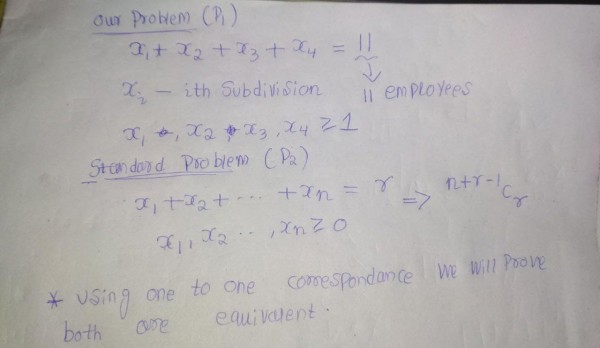 our Problem (P₁)
x₁ + x₂ + x₃ + x₄ = 11
xᵢ – ith Subdivision 11 employees
x₁, x₂, x₃, x₄ ≥ 1
Standard Problem (P₂)
x₁ + x₂ + ⋯ + xₙ = r ⇒ ⁿ⁺ʳ⁻¹Cᵣ
x₁, x₂ ⋯, xₙ ≥ 0
* Using one to one correspondance we will prove
both are equivalent.